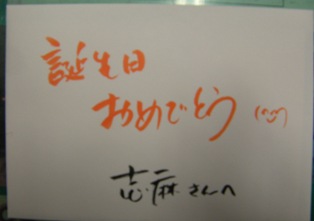 誕生日
おめでとう (^^)
志麻さんへ